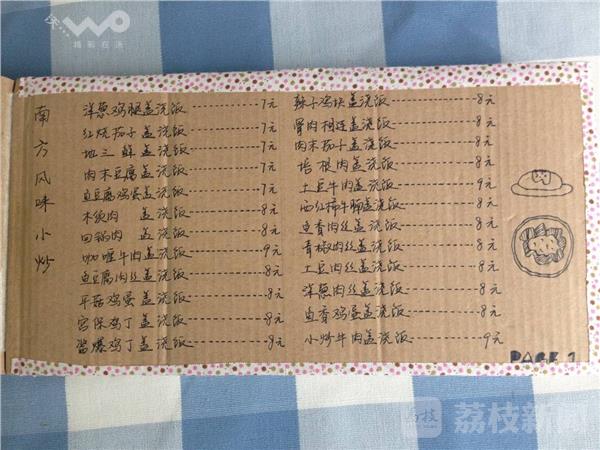 沃
WO
精彩在沃
南方风味小炒
洋葱鸡腿盖浇饭----------7元
红烧茄子盖浇饭----------7元
地三鲜盖浇饭----------7元
肉末豆腐盖浇饭----------7元
鱼豆腐鸡蛋盖浇饭----------7元
木须肉 盖浇饭----------8元
回锅肉 盖浇饭----------8元
咖喱牛肉盖浇饭----------9元
鱼豆腐肉丝盖浇饭----------8元
平菇鸡蛋盖浇饭----------8元
宫保鸡丁盖浇饭----------8元
酱爆鸡丁盖浇饭----------8元
辣子鸡块盖浇饭----------8元
骨肉相连盖浇饭----------8元
肉末茄子盖浇饭----------8元
培根肉盖浇饭----------8元
土豆牛肉盖浇饭----------9元
西红柿牛腩盖浇饭----------8元
鱼香肉丝盖浇饭----------8元
青椒肉丝盖浇饭----------8元
土豆肉丝盖浇饭----------8元
洋葱肉丝盖浇饭----------8元
鱼香鸡蛋盖浇饭----------8元
小炒牛肉盖浇饭----------9元
PAGE 1
荔枝新闻